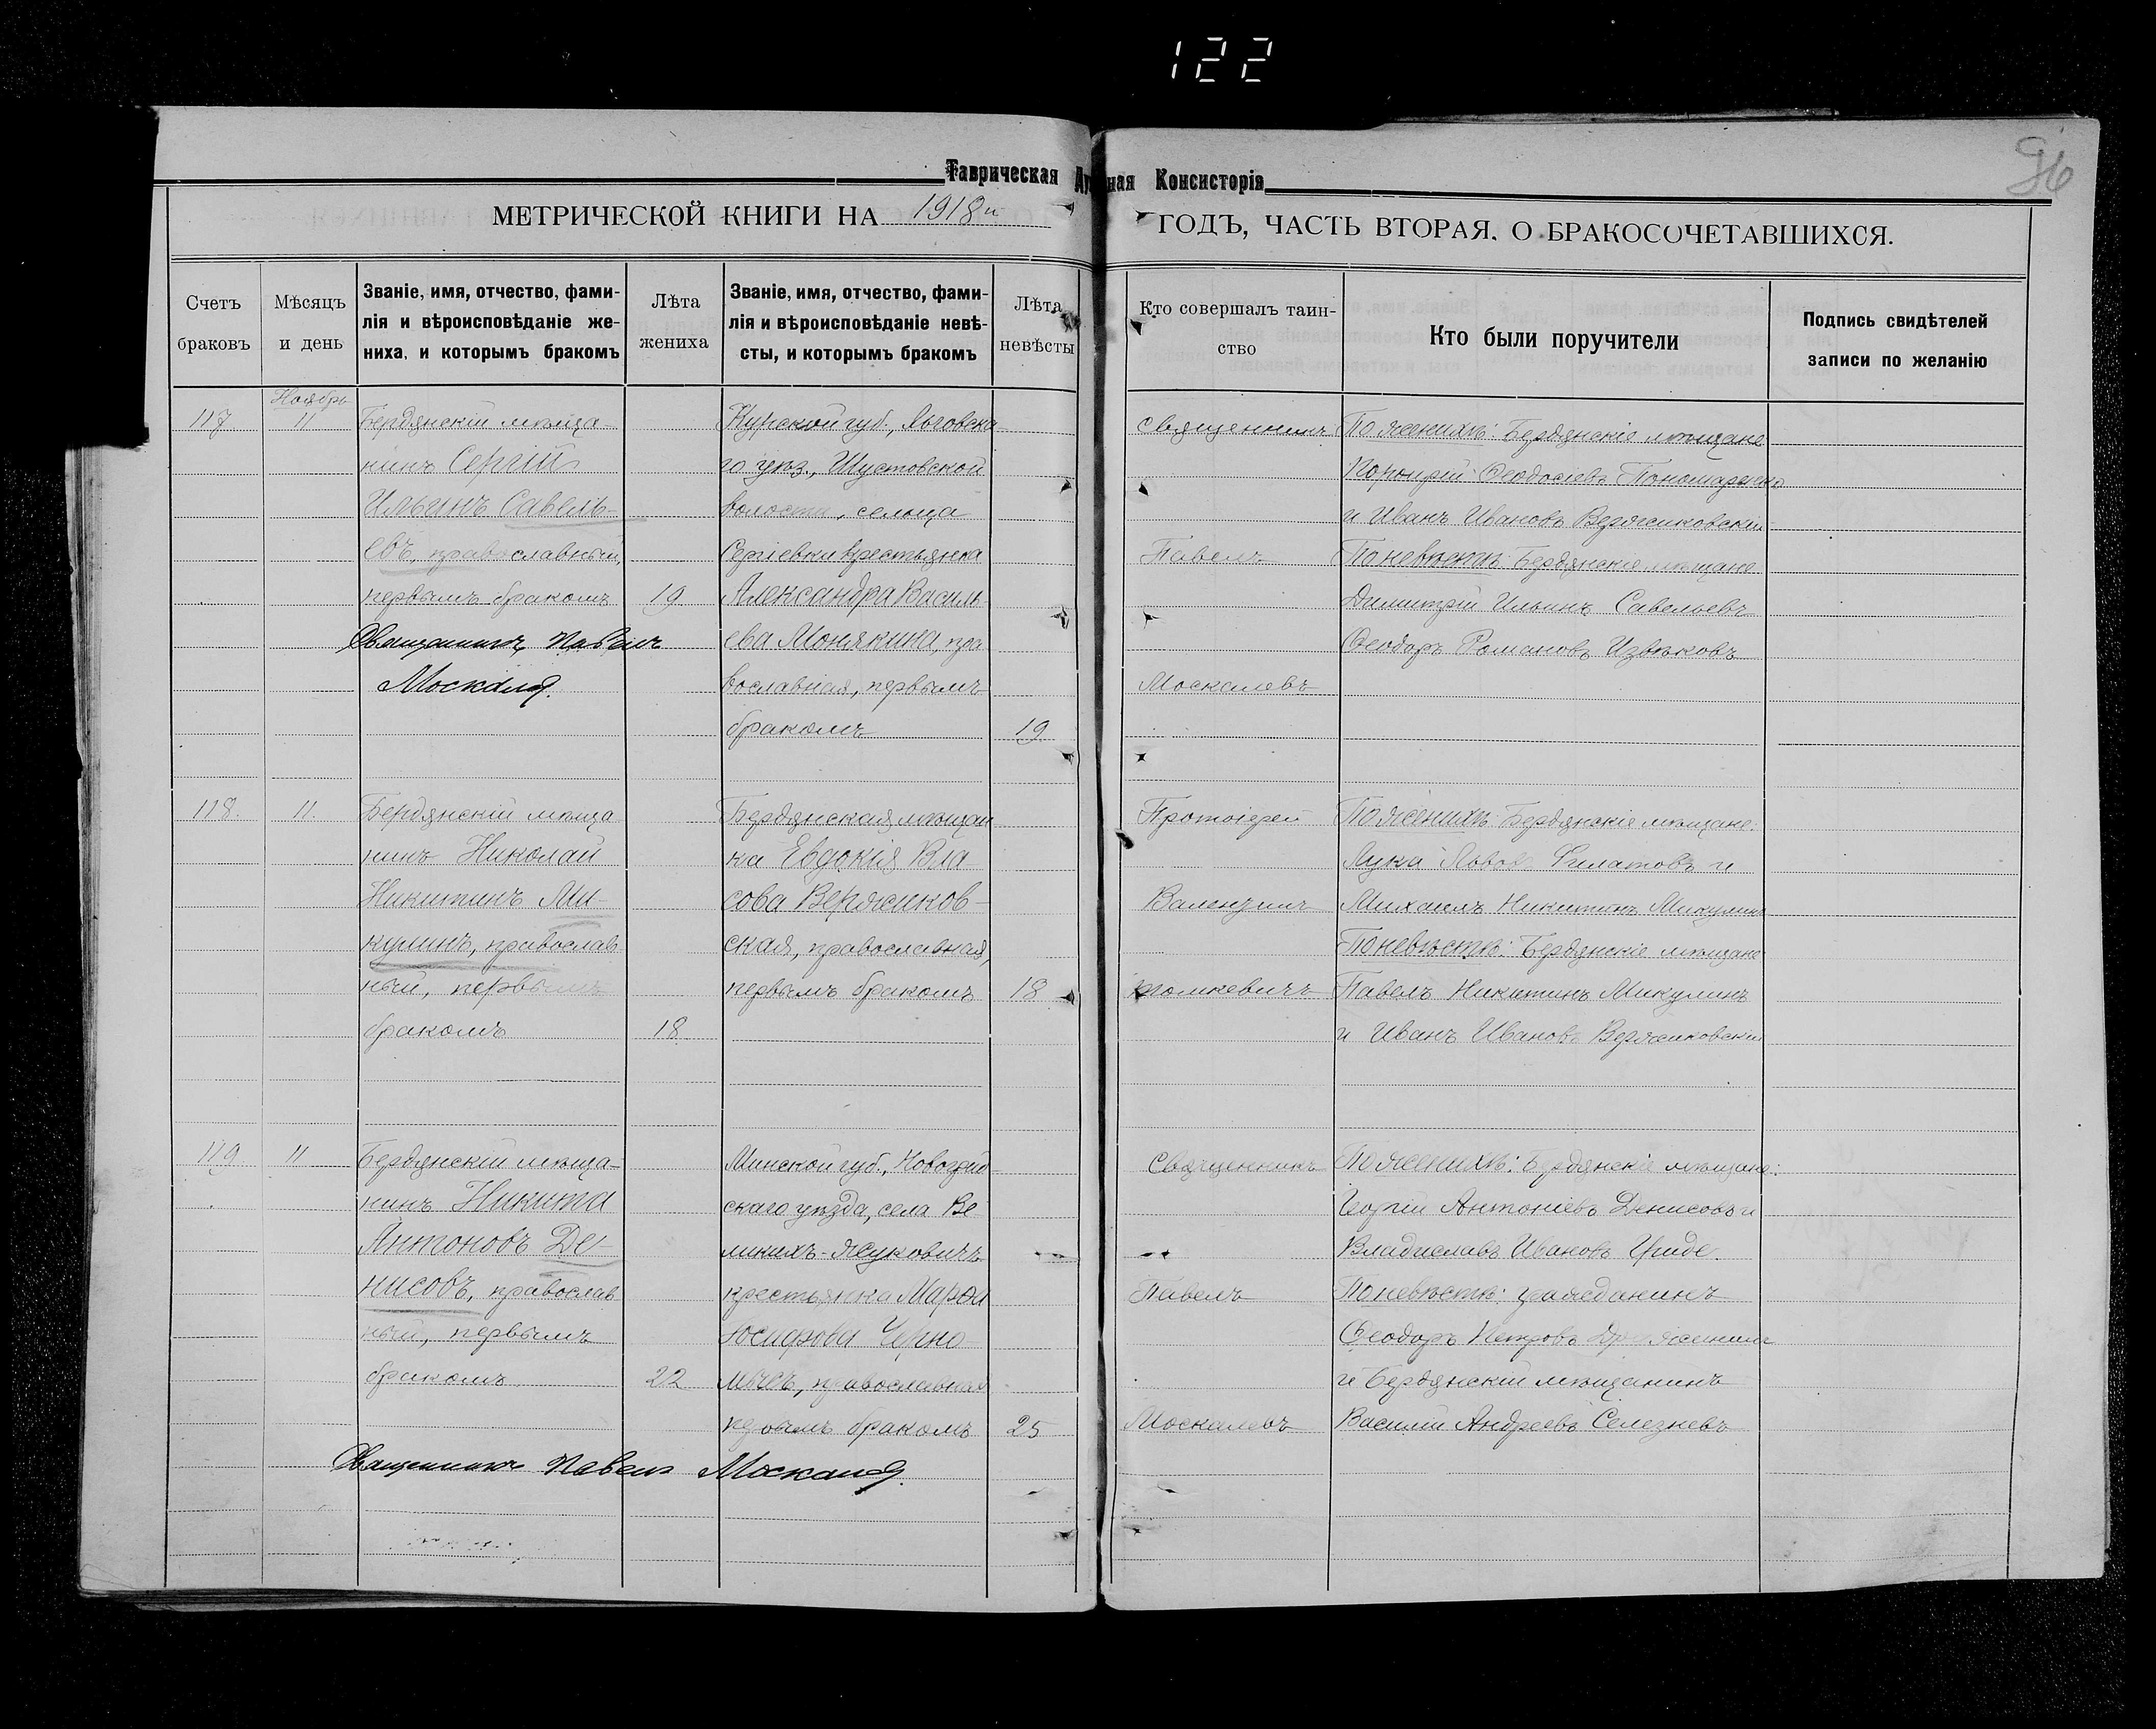 122
96
Таврическая Ду ная Консисторія
МЕТРИЧЕСКОЙ КНИГИ НА 1918й ГОДЪ, ЧАСТЬ ВТОРАЯ, О БРАКОСОЧЕТАВШИХСЯ.
Счетъ
браковъ
Мѣсяцъ
и день
Званіе, имя, отчество, фами-
лія и вѣроисповѣданіе же-
ниха, и которымъ бракомъ
Лѣта
жениха
Званіе, имя, отчество, фами-
лія и вѣроисповѣданіе невѣ-
сты, и которымъ бракомъ
Лѣта
невѣсты
Кто совершалъ таин-
ство
Кто были поручители
Подпись свидѣтелей
записи по желанію
117
Ноябрь
11
Бердянскій мѣща-
нинъ Сергій
Ильинъ Савель-
евъ, православный,
первымъ бракомъ
19
Священникъ Павелъ
Москалев
Курской губ., Льговска
го уѣз., Шустовской
волости, сельца
Сергіевки крестьянка
Александра Василь-
ева Монякина, пра
вославная, первымъ
бракомъ
19
Священникъ
Павелъ
Москалевъ
По женихѣ: Бердянскіе мѣщане
Порфирій Феодосіевъ Пономаренко
и Иванъ Ивановъ Вержиковскій
По невѣстѣ: Бердянскіе мѣщане
Димитрій Ильинъ Савельевъ
Феодоръ Романовъ Извѣковъ
118.
11.
Бердянскій мѣща
нинъ Николай
Никитинъ Ми-
кулинъ, православ
ный, первымъ
бракомъ
18
Бердянская мѣщан
ка Евдокія Вла
сова Вержиков-
ская, православная,
первымъ бракомъ
18
Протоіерей
Валентинъ
По женихѣ: Бердянскіе мѣщане:
Лука Львовъ Филатовъ и
Михаилъ Никитинъ Микулинъ
По невѣстѣ: Бердянскіе мѣщане
Павелъ Никитинъ Микулинъ
и Иванъ Ивановъ Вержиковскій
119
11
Бердянскій мѣща-
нинъ Никита
Антоновъ Де
нисовъ, православ
ный, первымъ
бракомъ
22
Минской губ., Новогруд-
скаго уѣзда, села Ве
ликихъ-Жуковичъ
крестьянка Марія
Іосифова Черно
православная
первымъ бракомъ
25
Священникъ Павелъ Москалев
Священникъ
Павелъ
Москалевъ
По женихѣ: Бердянскіе мѣщане:
Георгій Антоніевъ Денисовъ и
Владиславъ Ивановъ
По невѣстѣ: гражданинъ
Феодоръ Петровъ
и Бердянскій мѣщанинъ
Василій Андреевъ Селезневъ